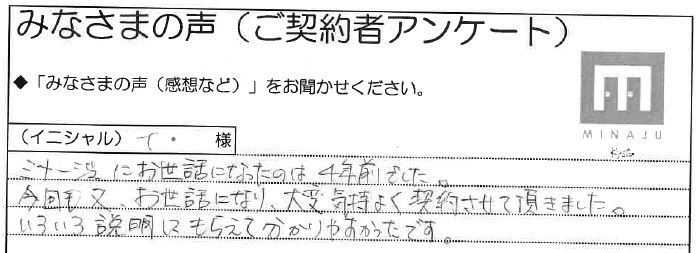 みなさまの声（ご契約者アンケート）
◆「みなさまの声（感想など）」をお聞かせください。
MINAJU
Kyoto
（イニシャル） T . 様
ミナージュにお世話になったのは4年前でした。
今回も又、お世話になり、大変気持よく契約させて頂きました。
いろいろ説明してもらえて分かりやすかったです。